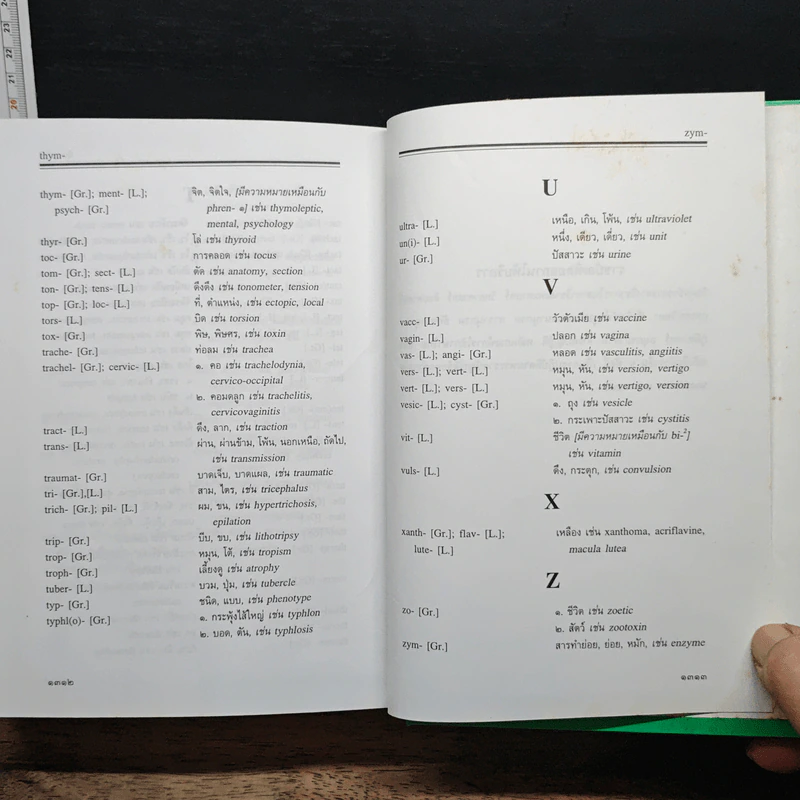 thym-
thym- [Gr.]; ment- [L.]; จิต, จิตใจ, [มีความหมายเหมือนกับ
psych- [Gr.] phren- ๑] เช่น thymoleptic,
mental, psychology
thyr- [Gr.] โล่ เช่น thyroid
toc- [Gr.] การคลอด เช่น tocus
tom- [Gr.]; sect- [L.] ตัด เช่น anatomy, section
ton- [Gr.]; tens- [L.] ดึงตึง เช่น tonometer, tension
top- [Gr.]; loc- [L.] ที่, ตำแหน่ง, เช่น ectopic, local
tors- [L.] บิด เช่น torsion
tox- [Gr.] พิษ, พิษศร, เช่น toxin
trache- [Gr.] ท่อลม เช่น trachea
trachel- [Gr.]; cervic- [L.] ๑. คอ เช่น trachelodynia,
cervico-occipital
๒. คอมดลูก เช่น trachelitis,
cervicovaginitis
tract- [L.] ดึง, ลาก, เช่น traction
trans- [L.] ผ่าน, ผ่านข้าม, โพ้น, นอกเหนือ, ถัดไป,
เช่น transmission
traumat- [Gr.] บาดเจ็บ, บาดแผล, เช่น traumatic
tri- [Gr.],[L.] สาม, ไตร, เช่น tricephalus
trich- [Gr.]; pil- [L.] ผม, ขน, เช่น hypertrichosis,
epilation
trip- [Gr.] บีบ, ขบ, เช่น lithotripsy
trop- [Gr.] หมุน, โค้, เช่น tropism
troph- [Gr.] เลี้ยงดู เช่น atrophy
tuber- [L.] บวม, ปุ่ม, เช่น tubercle
typ- [Gr.] ชนิด, แบบ, เช่น phenotype
typhl(o)- [Gr.] ๑. กระพุ้งไส้ใหญ่ เช่น typhlon
๒. บอด, ตัน, เช่น typhlosis
๑๓๑๒
zym-
U
ultra- [L.] เหนือ, เกิน, โพ้น, เช่น ultraviolet
un(i)- [L.] หนึ่ง, เดียว, เดี่ยว, เช่น unit
ur- [Gr.] ปัสสาวะ เช่น urine
V
vacc- [L.] วัวตัวเมีย เช่น vaccine
vagin- [L.] ปลอก เช่น vagina
vas- [L.]; angi- [Gr.] หลอด เช่น vasculitis, angiitis
vers- [L.]; vert- [L.] หมุน, หัน, เช่น version, vertigo
vert- [L.]; vers- [L.] หมุน, หัน, เช่น vertigo, version
vesic- [L.]; cyst- [Gr.] ๑. ถุง เช่น vesicle
๒. กระเพาะปัสสาวะ เช่น cystitis
vit- [L.] ชีวิต [มีความหมายเหมือนกับ bi-²]
เช่น vitamin
vuls- [L.] ดึง, กระตุก, เช่น convulsion
X
xanth- [Gr.]; flav- [L.]; เหลือง เช่น xanthoma, acriflavine,
lute- [L.] macula lutea
Z
zo- [Gr.] ๑. ชีวิต เช่น zoetic
๒. สัตว์ เช่น zootoxin
zym- [Gr.] สารทำย่อย, ย่อย, หมัก, เช่น enzyme
๑๓๑๓
20
21
22
23